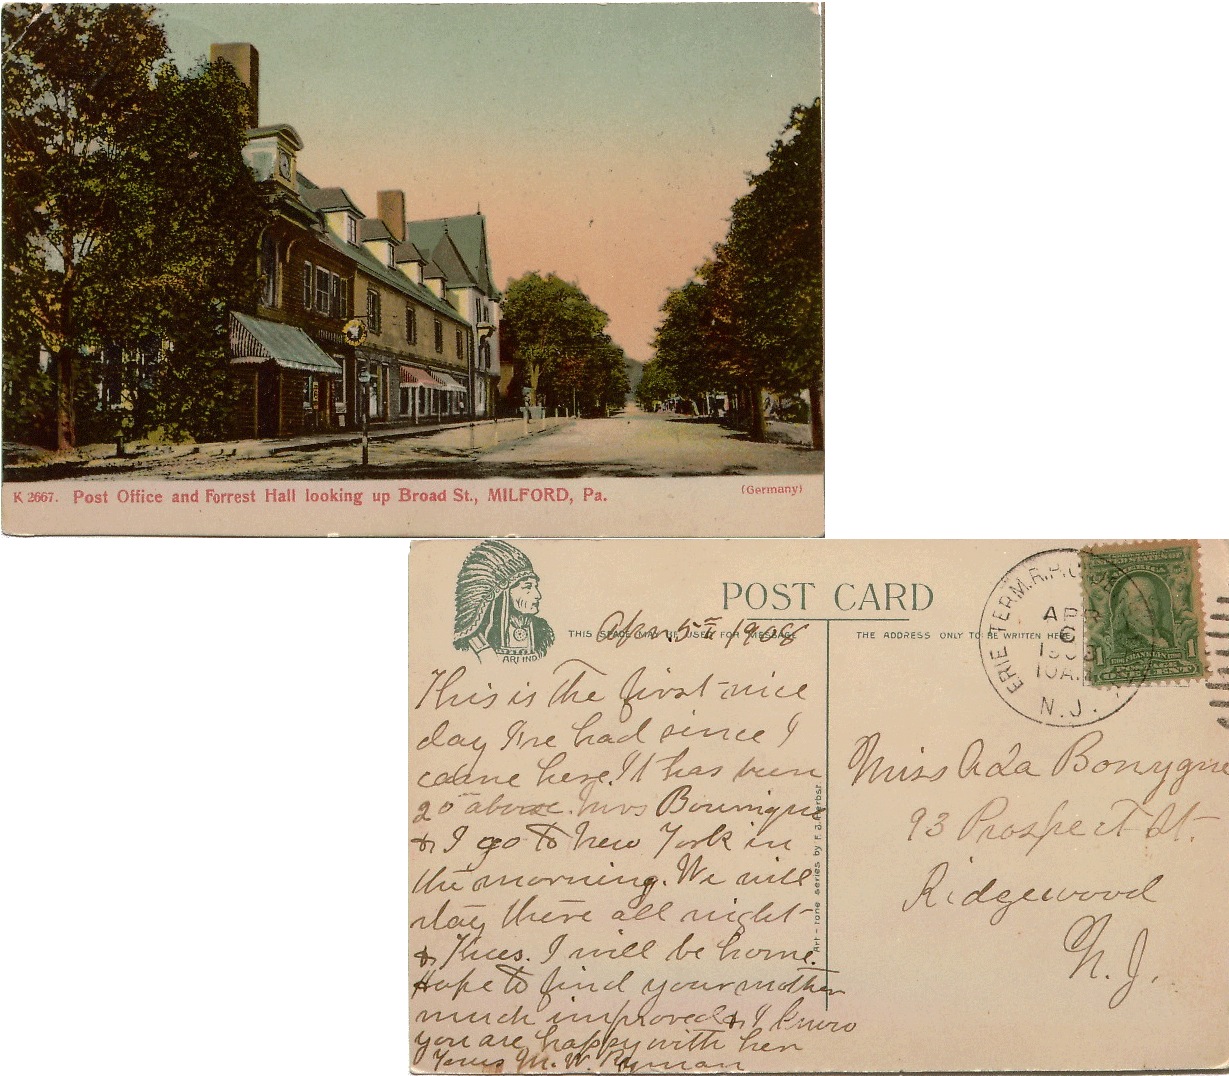 K 2667. Post Office and Forrest Hall looking up Broad St., MILFORD, Pa.
(Germany)
ART IND
POST CARD
THIS SPACE MAY BE USED FOR MESSAGE
THE ADDRESS ONLY TO BE WRITTEN HERE
ERIE TERM. R.P.O.
APR
6
10A.
N.J.
UNITED STATES OF
AMERICA
1 FRANKLIN 1
POSTAGE
ONE CENT
Apr 5th 1908
This is the first nice
day I've had since I
came here. It has been
20° above. Mrs
& I go to New York in
the morning. We will
stay there all night
& Tues. I will be home.
Hope to find your mother
much improved & I know
you are happy with her
Yours M. W. Ryman
Art-tone series by F. J. Herbst
Miss Ada Bonygne
93 Prospect St.
Ridgewood
N. J.